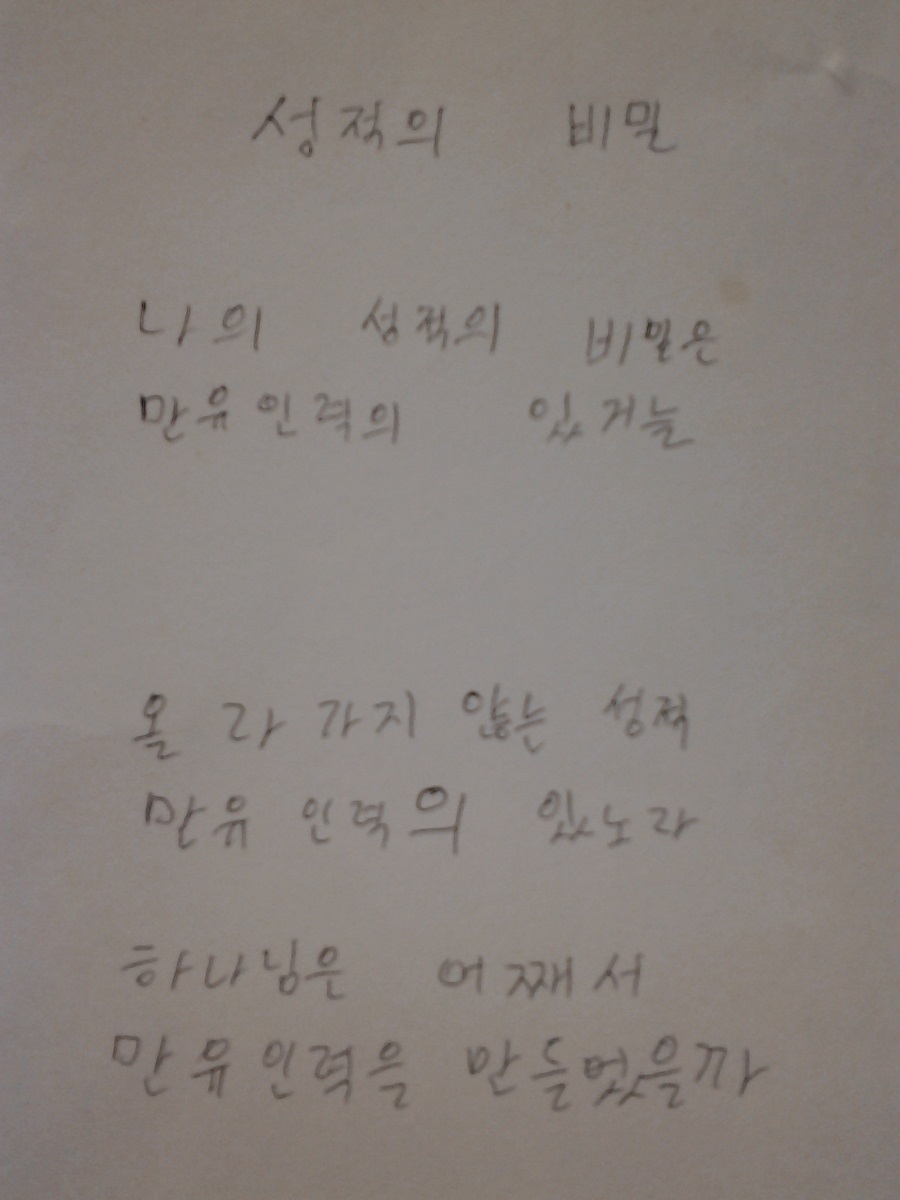 성적의 비밀
나의 성적의 비밀은
만유인력의 있거늘
올라가지 않는 성적
만유인력의 있노라
하나님은 어째서
만유인력을 만들었을까